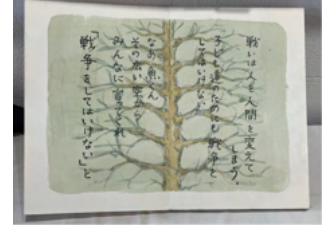 戦いは人を人間を変えて
しまう。
子ども達のためにも戦争を
してはいけない
なあ、魚くん
その広い空から
みんなに言ってくれ
「戦争をしてはいけない」と